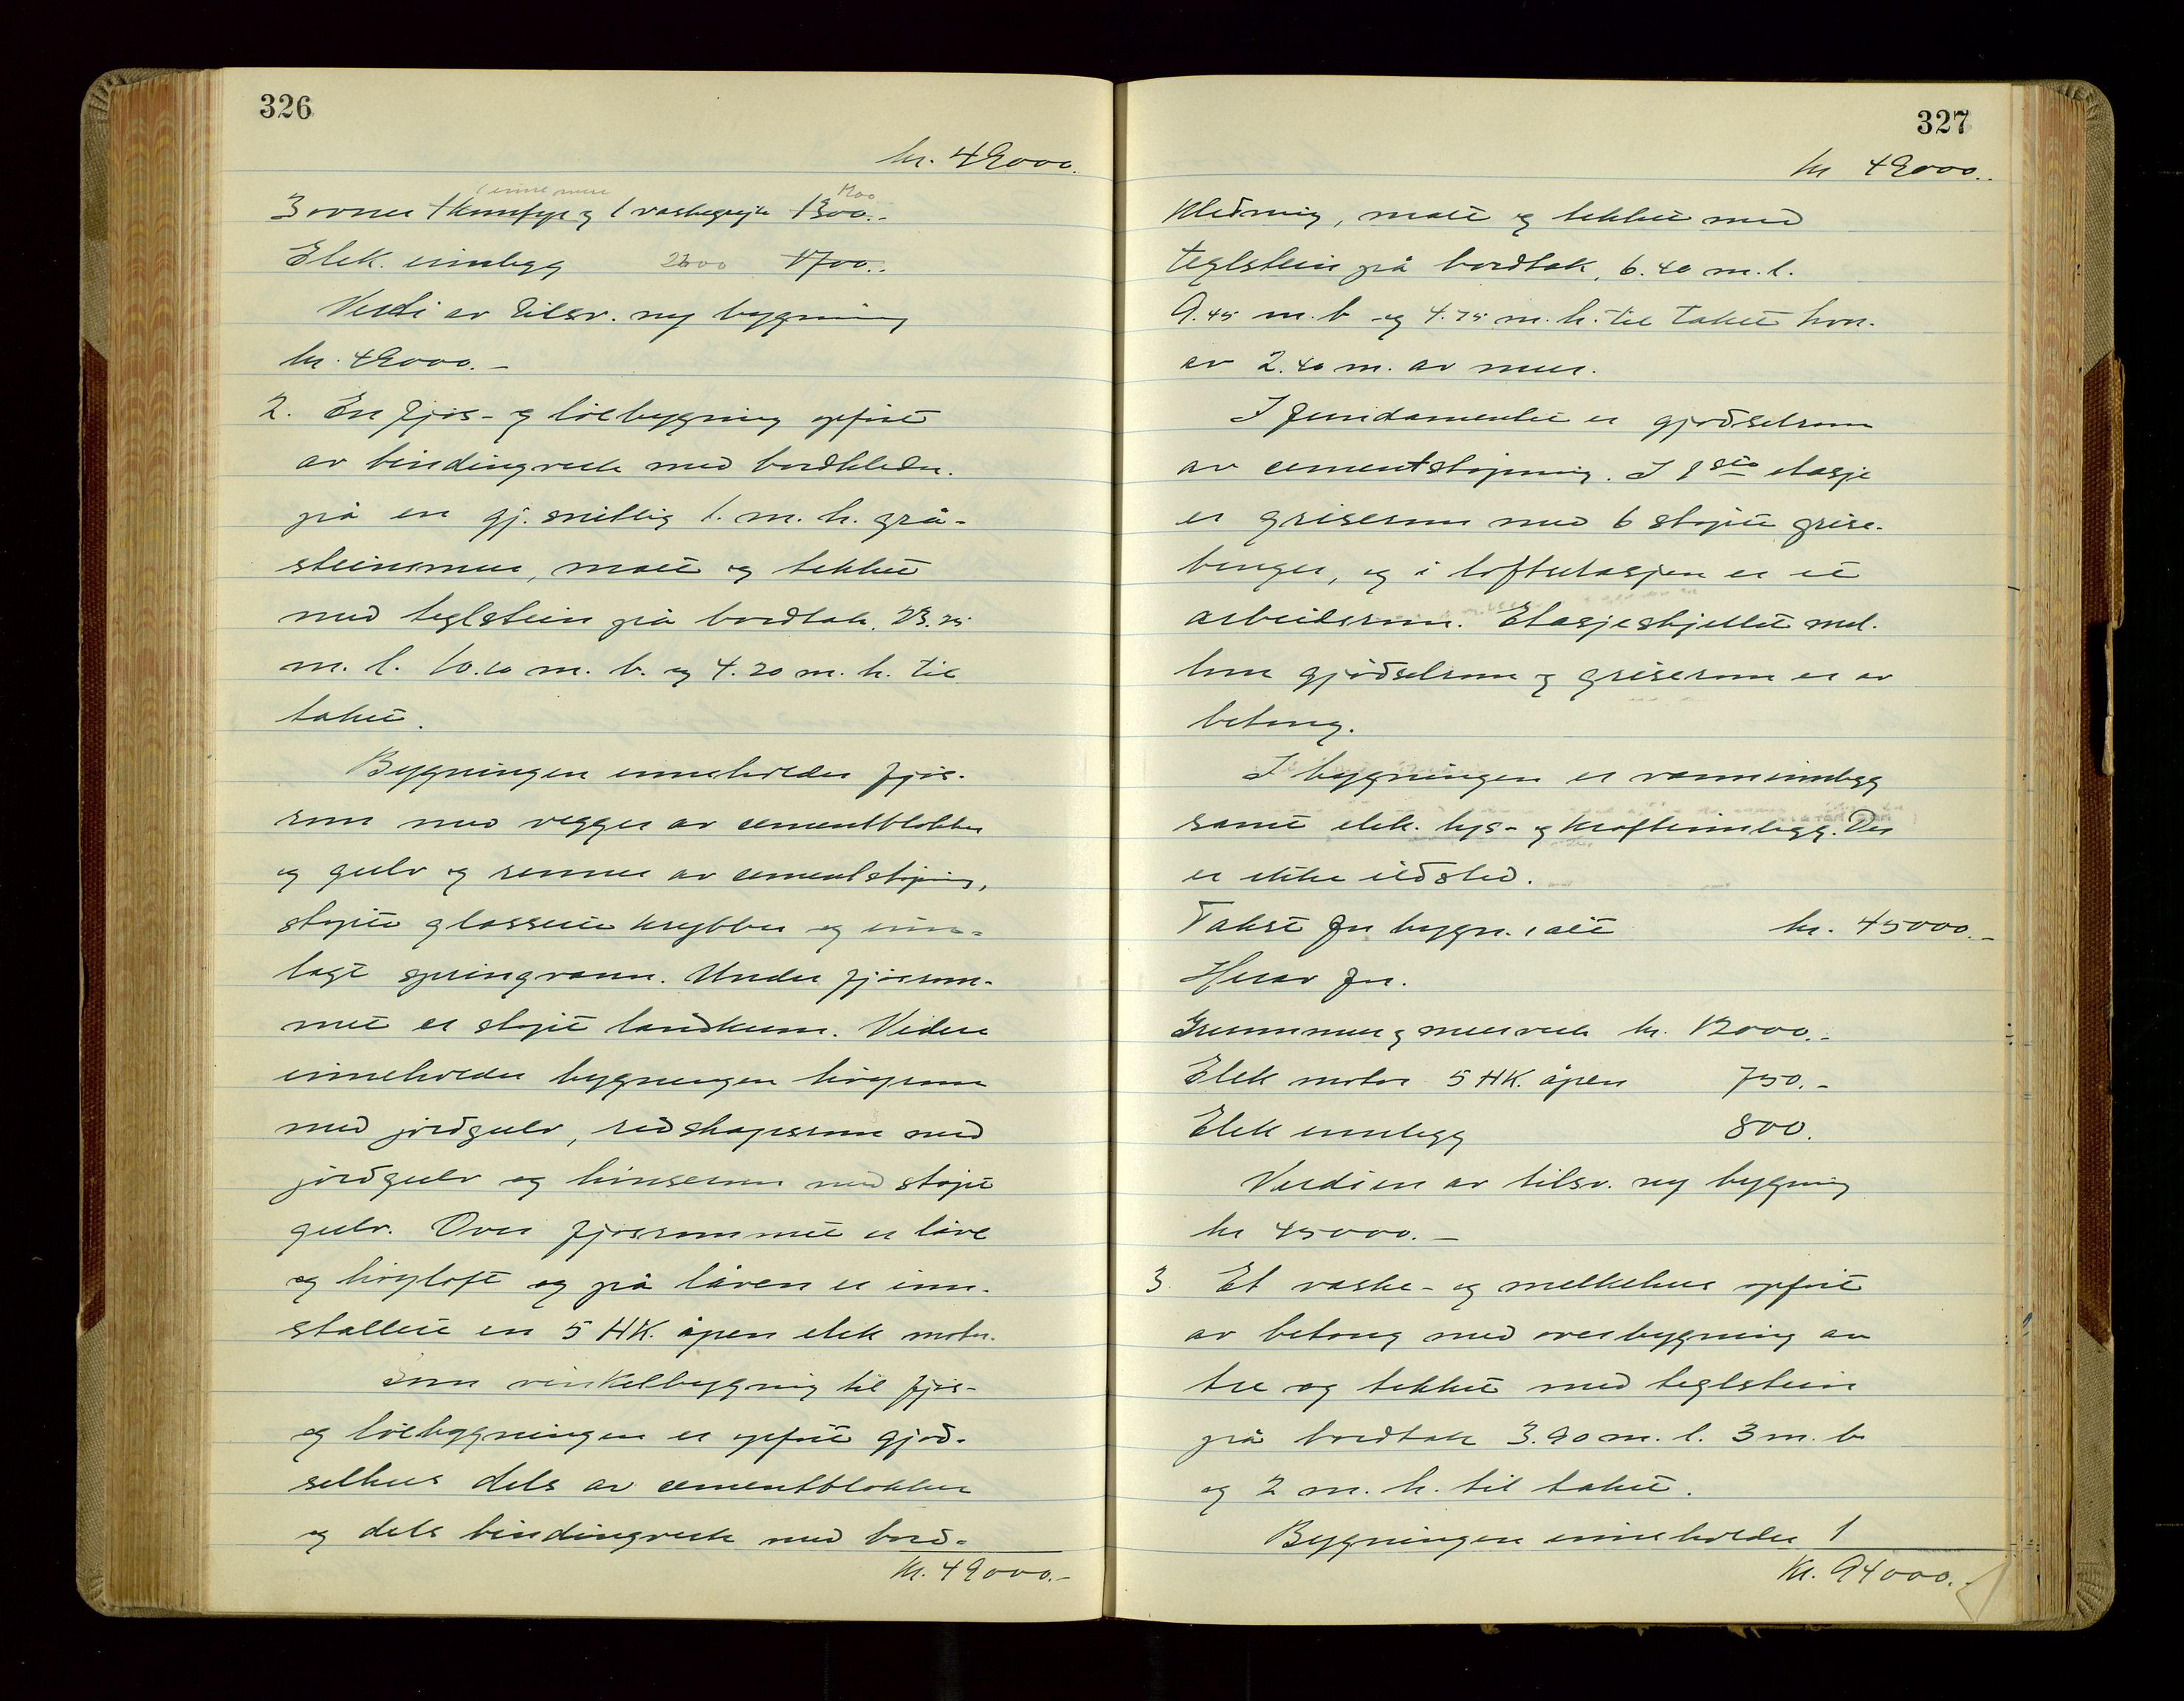 326
kr. 49000.
1200
3 ovner 1 komfyr og 1 vaskegryte 1300.-
Elek. innlegg 2200 1700.-
Verdi av tilsv. ny bygning
kr. 49000.-
2. En fjøs- og løebygning opført
av bindingverk med bordkledn.
på en gj. snittlig 1. m. h. grå-
steinsmur, malt og tekket
med teglstein på bordtak. 23.75
m. l. 10.10 m. b. og 4.20 m. h. til
taket.
Bygningen inneholder fjøs-
rom med vegger av cementblokker
og gulv og renner av cementstøpning,
støpte glasserte krybber og inn-
lagt springvann. Under fjøsrom-
met er støpt landkum. Videre
inneholder bygningen høyrom
med jordgulv, redskapsrom med
jordgulv og hønserom med støpt
gulv. Over fjøsrommet er låve
og høyloft og på låven er inn-
stallert en 5 HK. åpen elek motor.
Som vinkelbygning til fjøs-
og løebygningen er opført gjød-
selhus dels av cementblokker
og dels bindingverk med bord-
Kr. 49000.-
327
kr 49000.-
kledning, malt og tekket med
teglstein på bordtak, 6.40 m. l.
9.45 m. b og 4.75 m. h. til taket hvor-
av 2.40 m. av mur.
I fundamentet er gjødselrom
av cementstøpning. I 1ste etasje
er griserom med 6 støpte grise-
binger, og i loftsetasjen er et
arbeidsrom. Etasjeskjellet mel-
lom gjødselrom og griserom er av
betong.
I bygningen er vanninnlegg
samt elek. lys- og kraftinnlegg. Der
er ikke ildsted.
Takst for bygn. i alt kr. 45000.-
Herav for.
Grunnmur og murverk kr. 12000.-
Elek motor 5 HK. åpen 750.-
Elek innlegg 800.
Verdien av tilsv. ny bygning
kr 45000.-
3. Et vaske- og melkehus opført
av betong med overbygning av
tre og tekket med teglstein
på bordtak 3.90 m. l. 3 m. b
og 2 m. h. til taket.
Bygningen inneholder 1
Kr. 94000.-